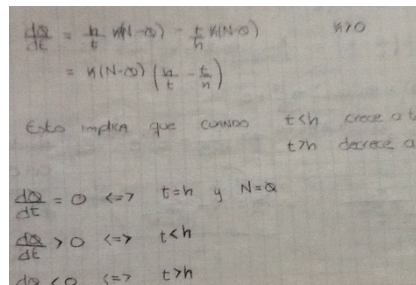 dQ/dt = h/t K(N-Q) - t/h K(N-Q) K>0
= K(N-Q) (h/t - t/h)
Esto implica que cuando t<h crece a t
t>h decrece a
dQ/dt = 0 <=> t=h y N=Q
dQ/dt > 0 <=> t<h
dQ < 0 <=> t>h